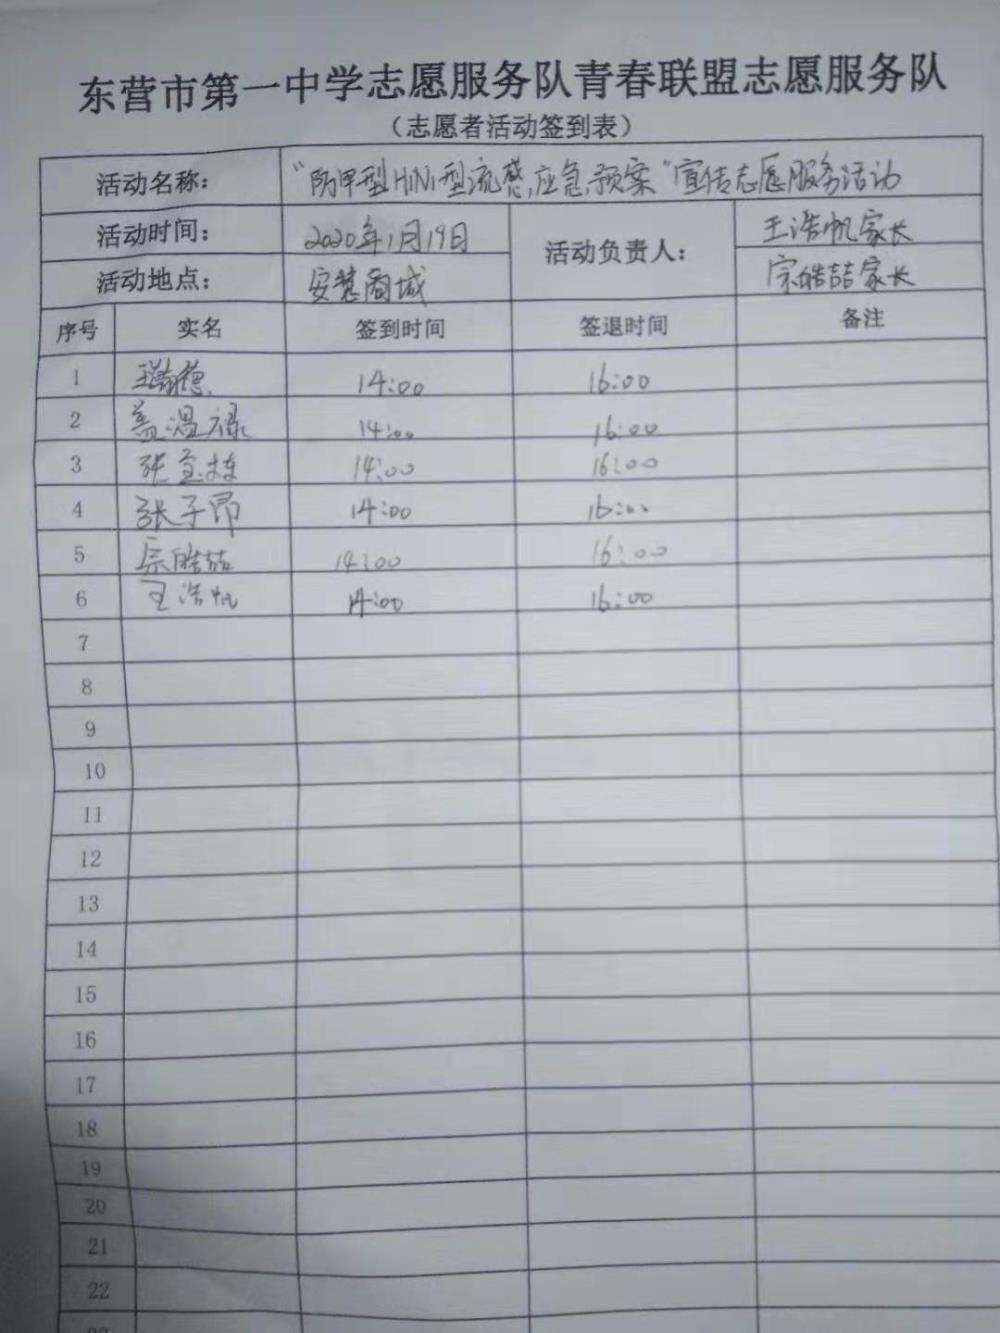 东营市第一中学志愿服务队青春联盟志愿服务队
（志愿者活动签到表）
活动名称： “防甲型H1N1型流感,应急预案”宣传志愿服务活动
活动时间： 2020年1月19日 活动负责人： 王浩帆家长
活动地点： 安慧商城 宗皓喆家长
序号 实名 签到时间 签退时间 备注
1 王瀚德 14:00 16:00
2 盖温禄 14:00 16:00
3 张宝栋 14:00 16:00
4 张子昂 14:00 16:00
5 宗皓喆 14:00 16:00
6 王浩帆 14:00 16:00
7
8
9
10
11
12
13
14
15
16
17
18
19
20
21
22
23